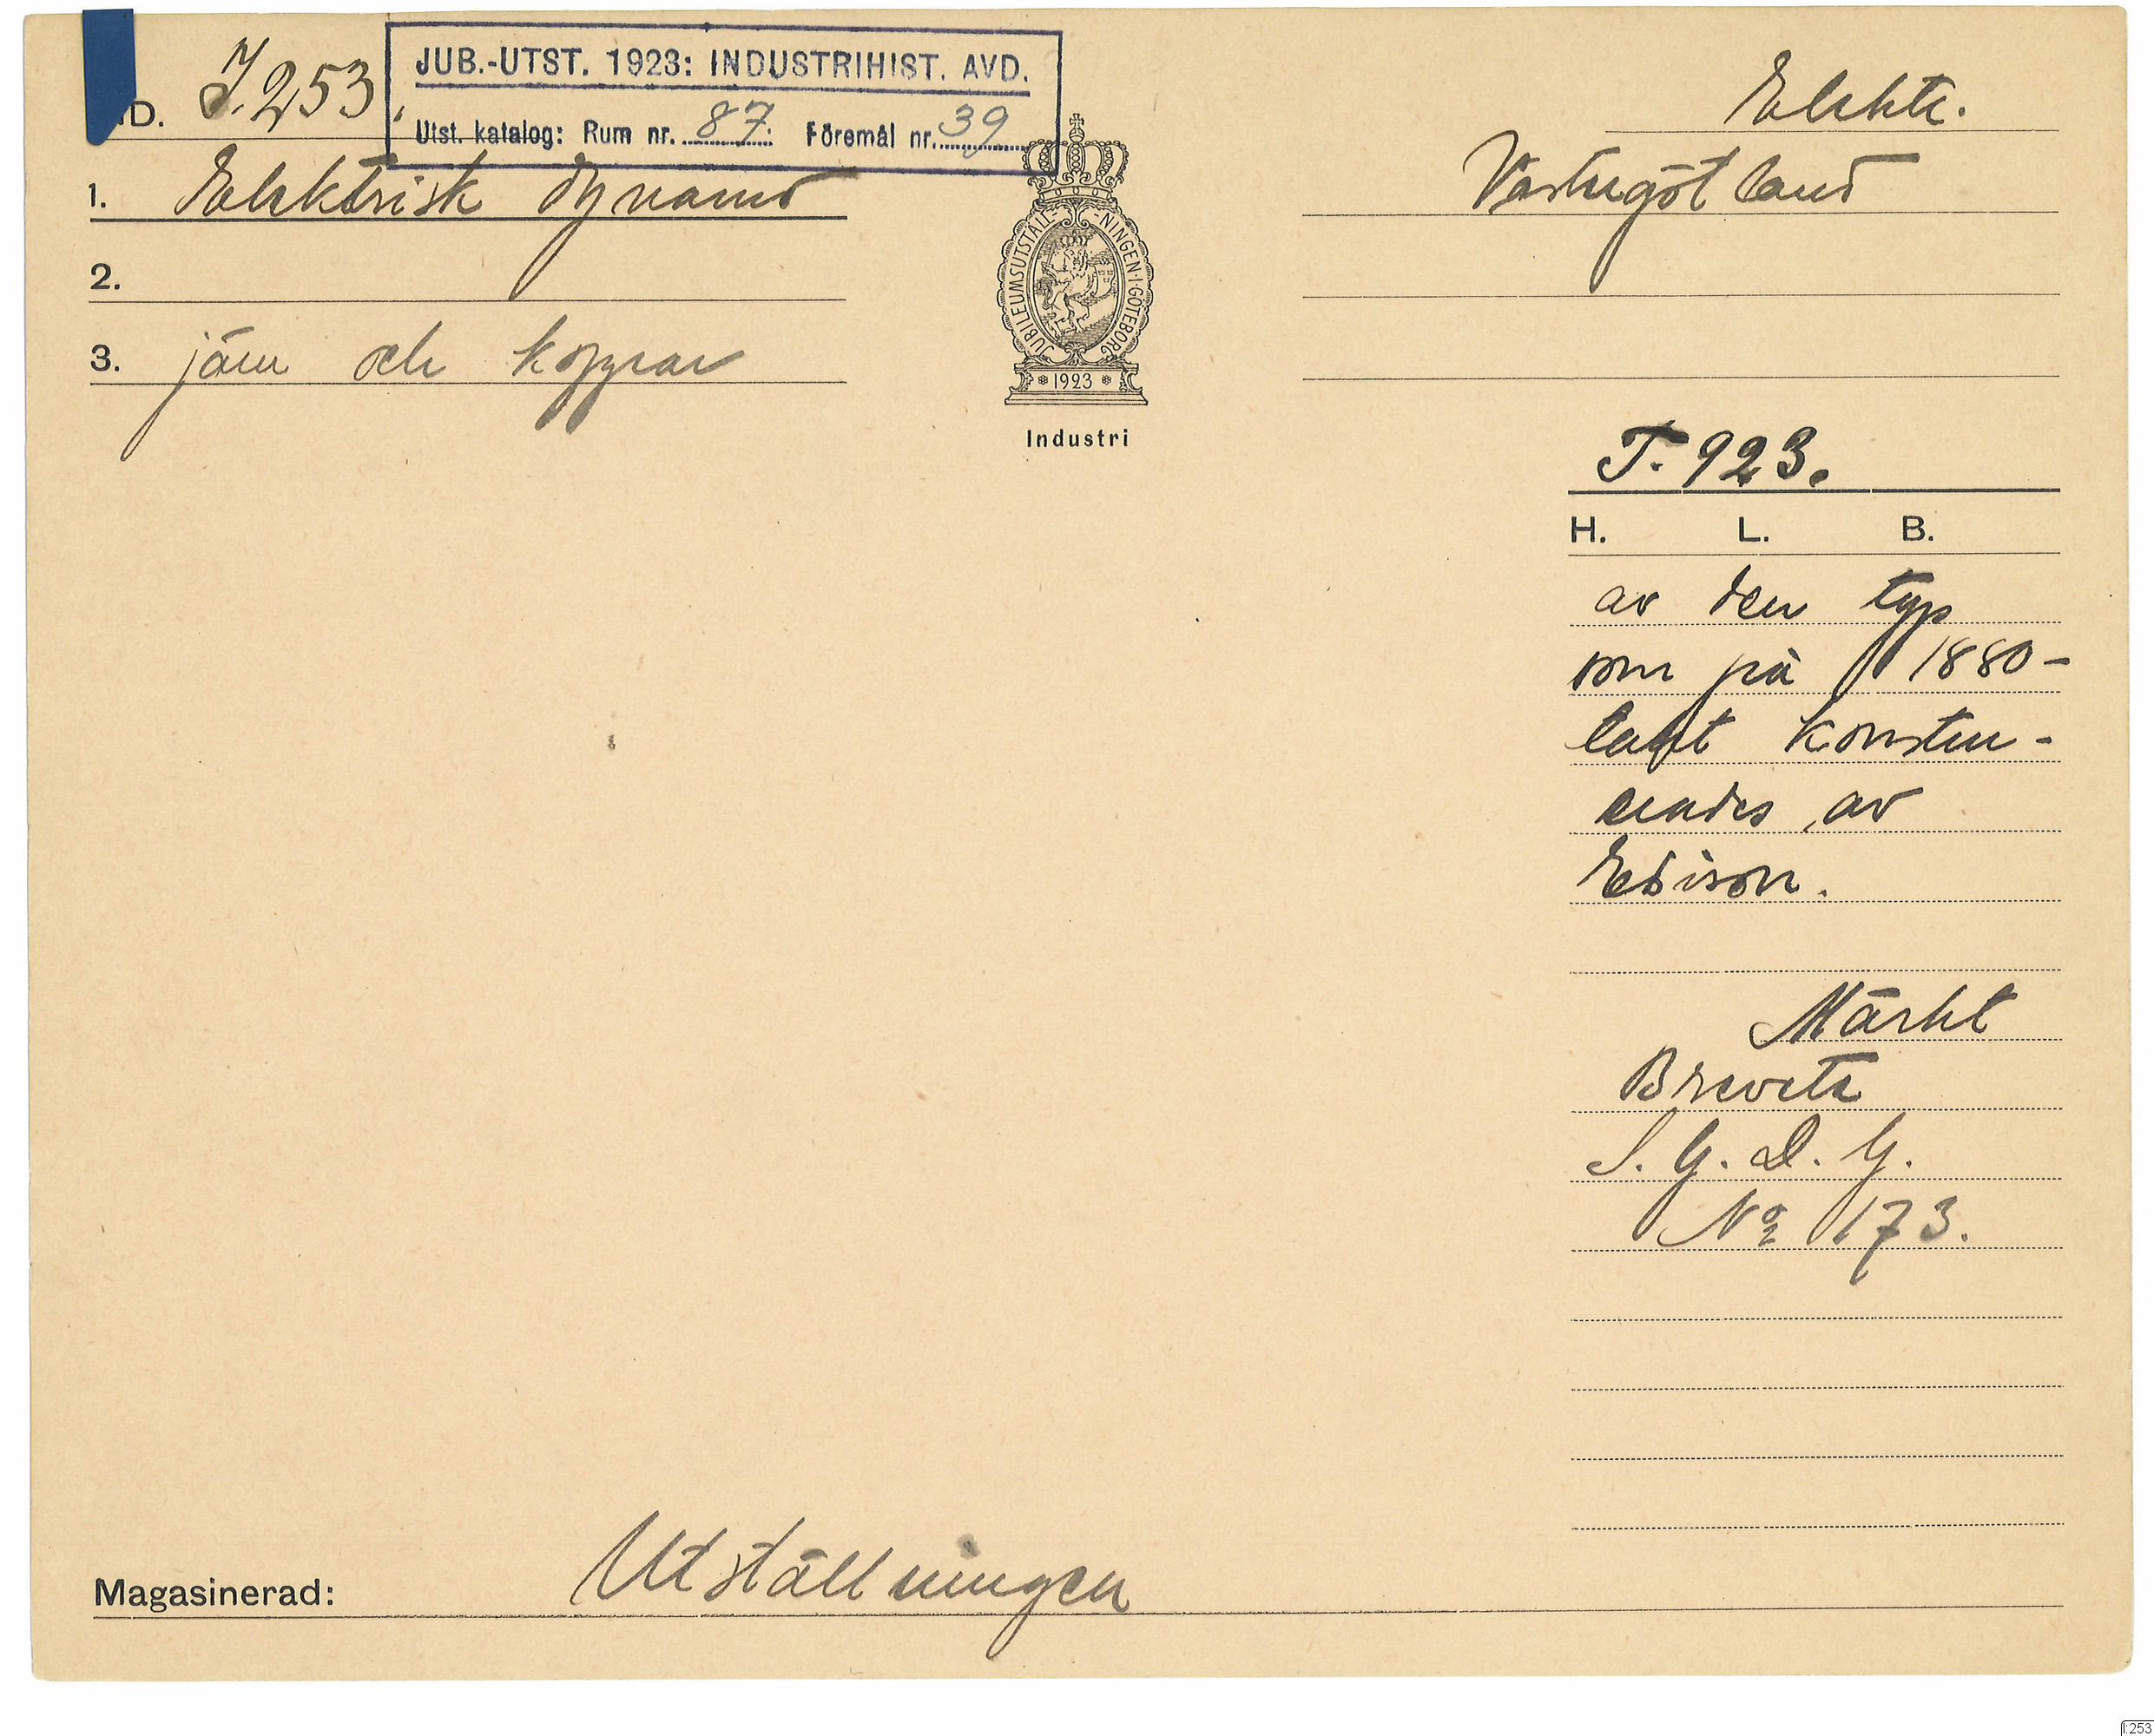 JUB.-UTST. 1923: INDUSTRIHIST. AVD.
Utst. katalog: Rum nr. 87. Föremål nr. 39
D. I. 253.
Elektr.
1. Elektrisk dynamo
Västergötland
2.
3. järn och koppar
JUBILEUMSUTSTÄLL-NINGEN·I·GÖTEBORG
1923
Industri
T. 923.
H. L. B.
av den typ
som på 1880-
talet konstru-
erades av
Edison.
Märkt
Breveté
S. G. D. G.
No 173.
Magasinerad: Utställningen
I:253